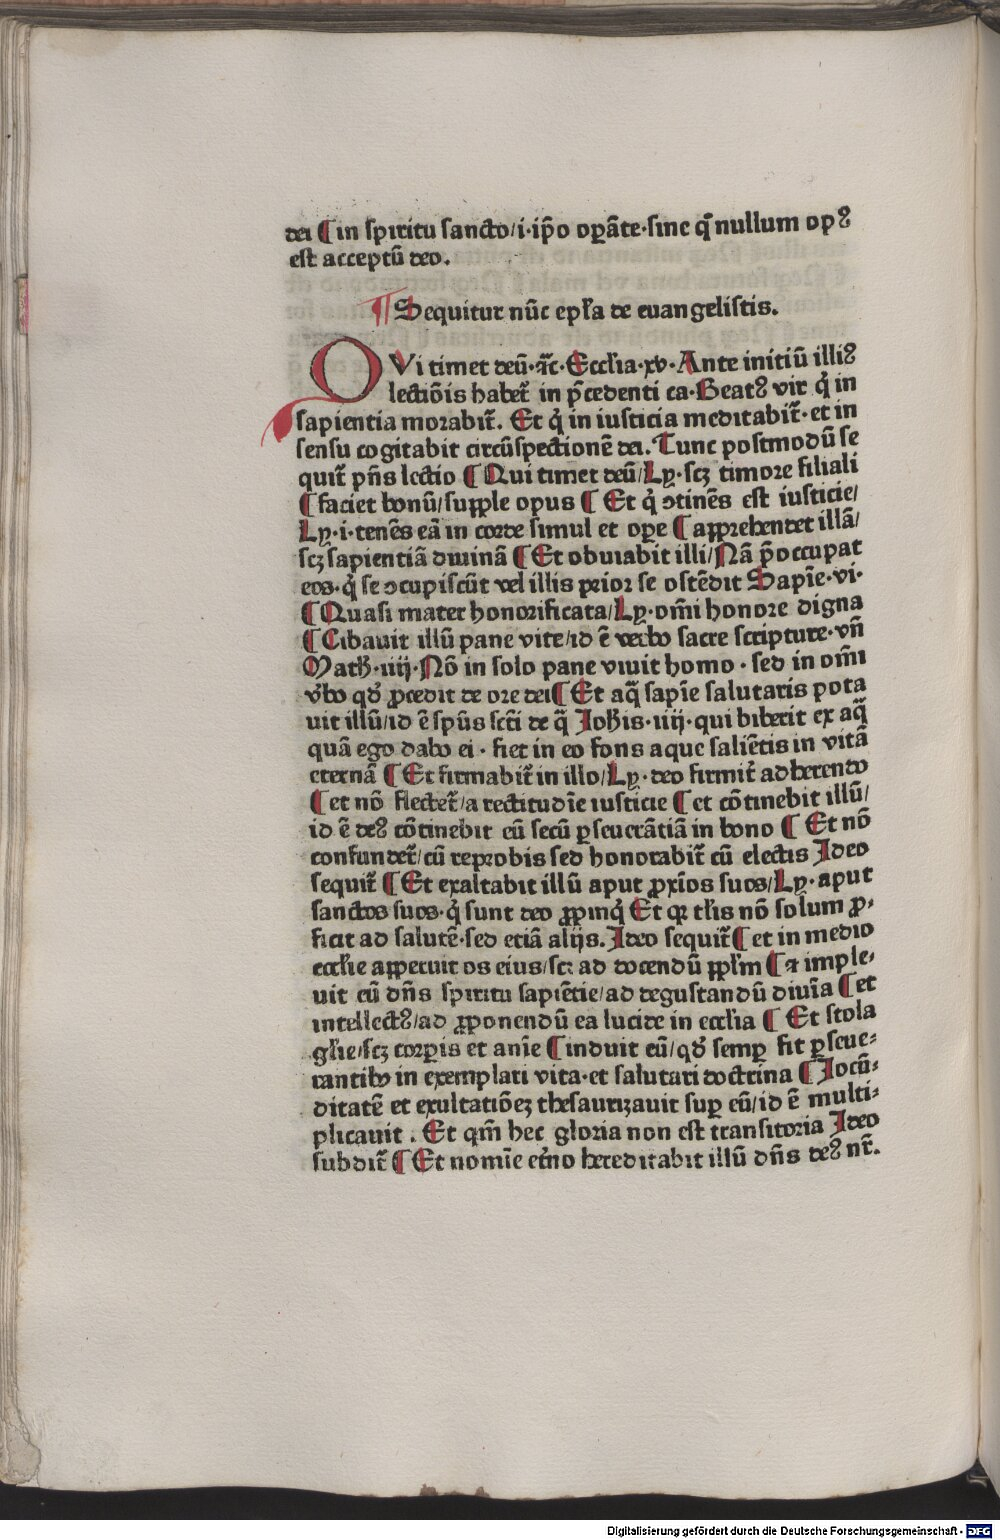 dei ¶ in spiritu sancto/i·ip̄o oꝑāte·sine q̄ nullum opꝰ
est acceptū deo.
¶ Sequitur nūc epl̄a de euangelistis.
QVi timet deū·⁊c̄·Eccl̄ia·xv·Ante initiū illiꝰ
lectiōis habet᷑ in p̄cedenti ca·Beatꝰ vir q̇ in
sapientia morabit᷑. Et q̇ in iusticia meditabit᷑·et in
sensu cogitabit circūspectionē dei. Tunc postmodū se
quit᷑ pn̄s lectio ¶ Qui timet deū/Ly·scꝫ timore filiali
¶ faciet bonū/supple opus ¶ Et q̇ ꝯtinēs est iusticie/
Ly·i·tenēs eā in corde simul et oꝑe ¶ apprehendet illā/
scꝫ sapientiā diuinā ¶ Et obuiabit illi/Nā p̄occupat
eos·q̇ se ꝯcupiscūt vel illis prior se ostēdit Sapīe·vi·
¶ Quasi mater honorificata/Ly·om̄i honore digna
¶ Cibauit illū pane vite/id ē verbo sacre scripture·vn̄
Math̄·iiij·Nō in solo pane viuit homo·sed in om̄i
v̄bo qd̄ ꝓcedit de ore dei ¶ Et aq̄ sapīe salutaris pota
uit illū/id ē sp̄us sc̄ti de q̄ Joh̄is·iiij·qui biberit ex aq̄
quā ego dabo ei·fiet in eo fons aque saliētis in vitā
eternā ¶ Et firmabit᷑ in illo/Ly·deo firmit᷑ adherendo
¶ et nō flectet᷑/a rectitudīe iusticie ¶ et cōtinebit illū/
id ē deꝰ cōtinebit eū secū ꝑseuerātiā in bono ¶ Et nō
confundet᷑/cū reprobis sed honorabit᷑ cū electis Jdeo
sequit᷑ ¶ Et exaltabit illū aput ꝓxīos suos/Ly·aput
sanctos suos·q̇ sunt deo ꝓpinq̇ Et qꝛ tl̄is nō solum ꝓ⸗
ficit ad salutē·sed etiā alijs. Jdeo sequit᷑ ¶ et in medio
eccl̄ie apperuit os eius/scꝫ ad docendū ppl̄m ¶ ⁊ imple⸗
uit eū dn̄s spiritu sapiētie/ad degustandū diuīa ¶ et
intellectꝰ/ad ꝓponendū ea lucide in eccl̄ia ¶ Et stola
gl̄ie/scꝫ corꝑis et anīe ¶ induit eū/qd̄ semꝑ fit ꝑseue⸗
rantibꝰ in exemplari vita·et salutari doctrina ¶ Jocū⸗
ditatē et exultatiōeꝫ thesaurizauit suꝑ eū/id ē multi⸗
plicauit. Et qm̄ hec gloria non est transitoria Jdeo
subdit᷑ ¶ Et nomīe et̄no hereditabit illū dn̄s deꝰ nr̄.
Digitalisierung gefördert durch die Deutsche Forschungsgemeinschaft - DFG